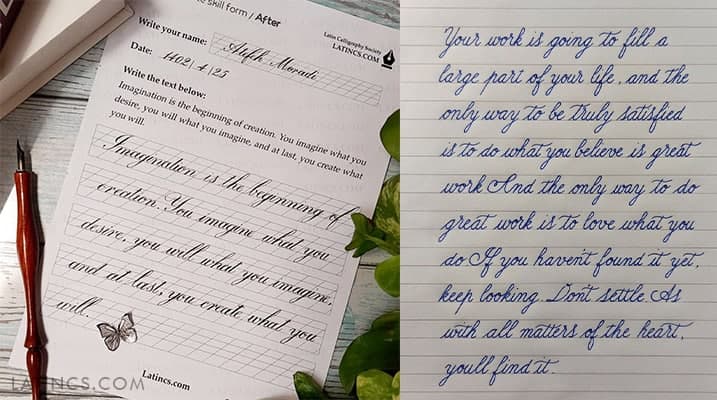 skill form / After
Latin Calligraphy Society
LATINCS.COM
Write your name: Atefeh Moradi
Date: 1402/4/25
Write the text below:
Imagination is the beginning of creation. You imagine what you
desire, you will what you imagine, and at last, you create what
you will.
Imagenation is the beginning of
creation. You imagine what you
desire, you will what you imagine,
and at last, you create what you
will.
Latincs.com
LATINCS.COM
Your work is going to fill a
large part of your life, and the
only way to be truly satisfied
is to do what you believe is great
work And the only way to do
great work is to love what you
do. If you haven't found it yet,
keep looking. Don't settle. As
with all matters of the heart,
you'll find it.